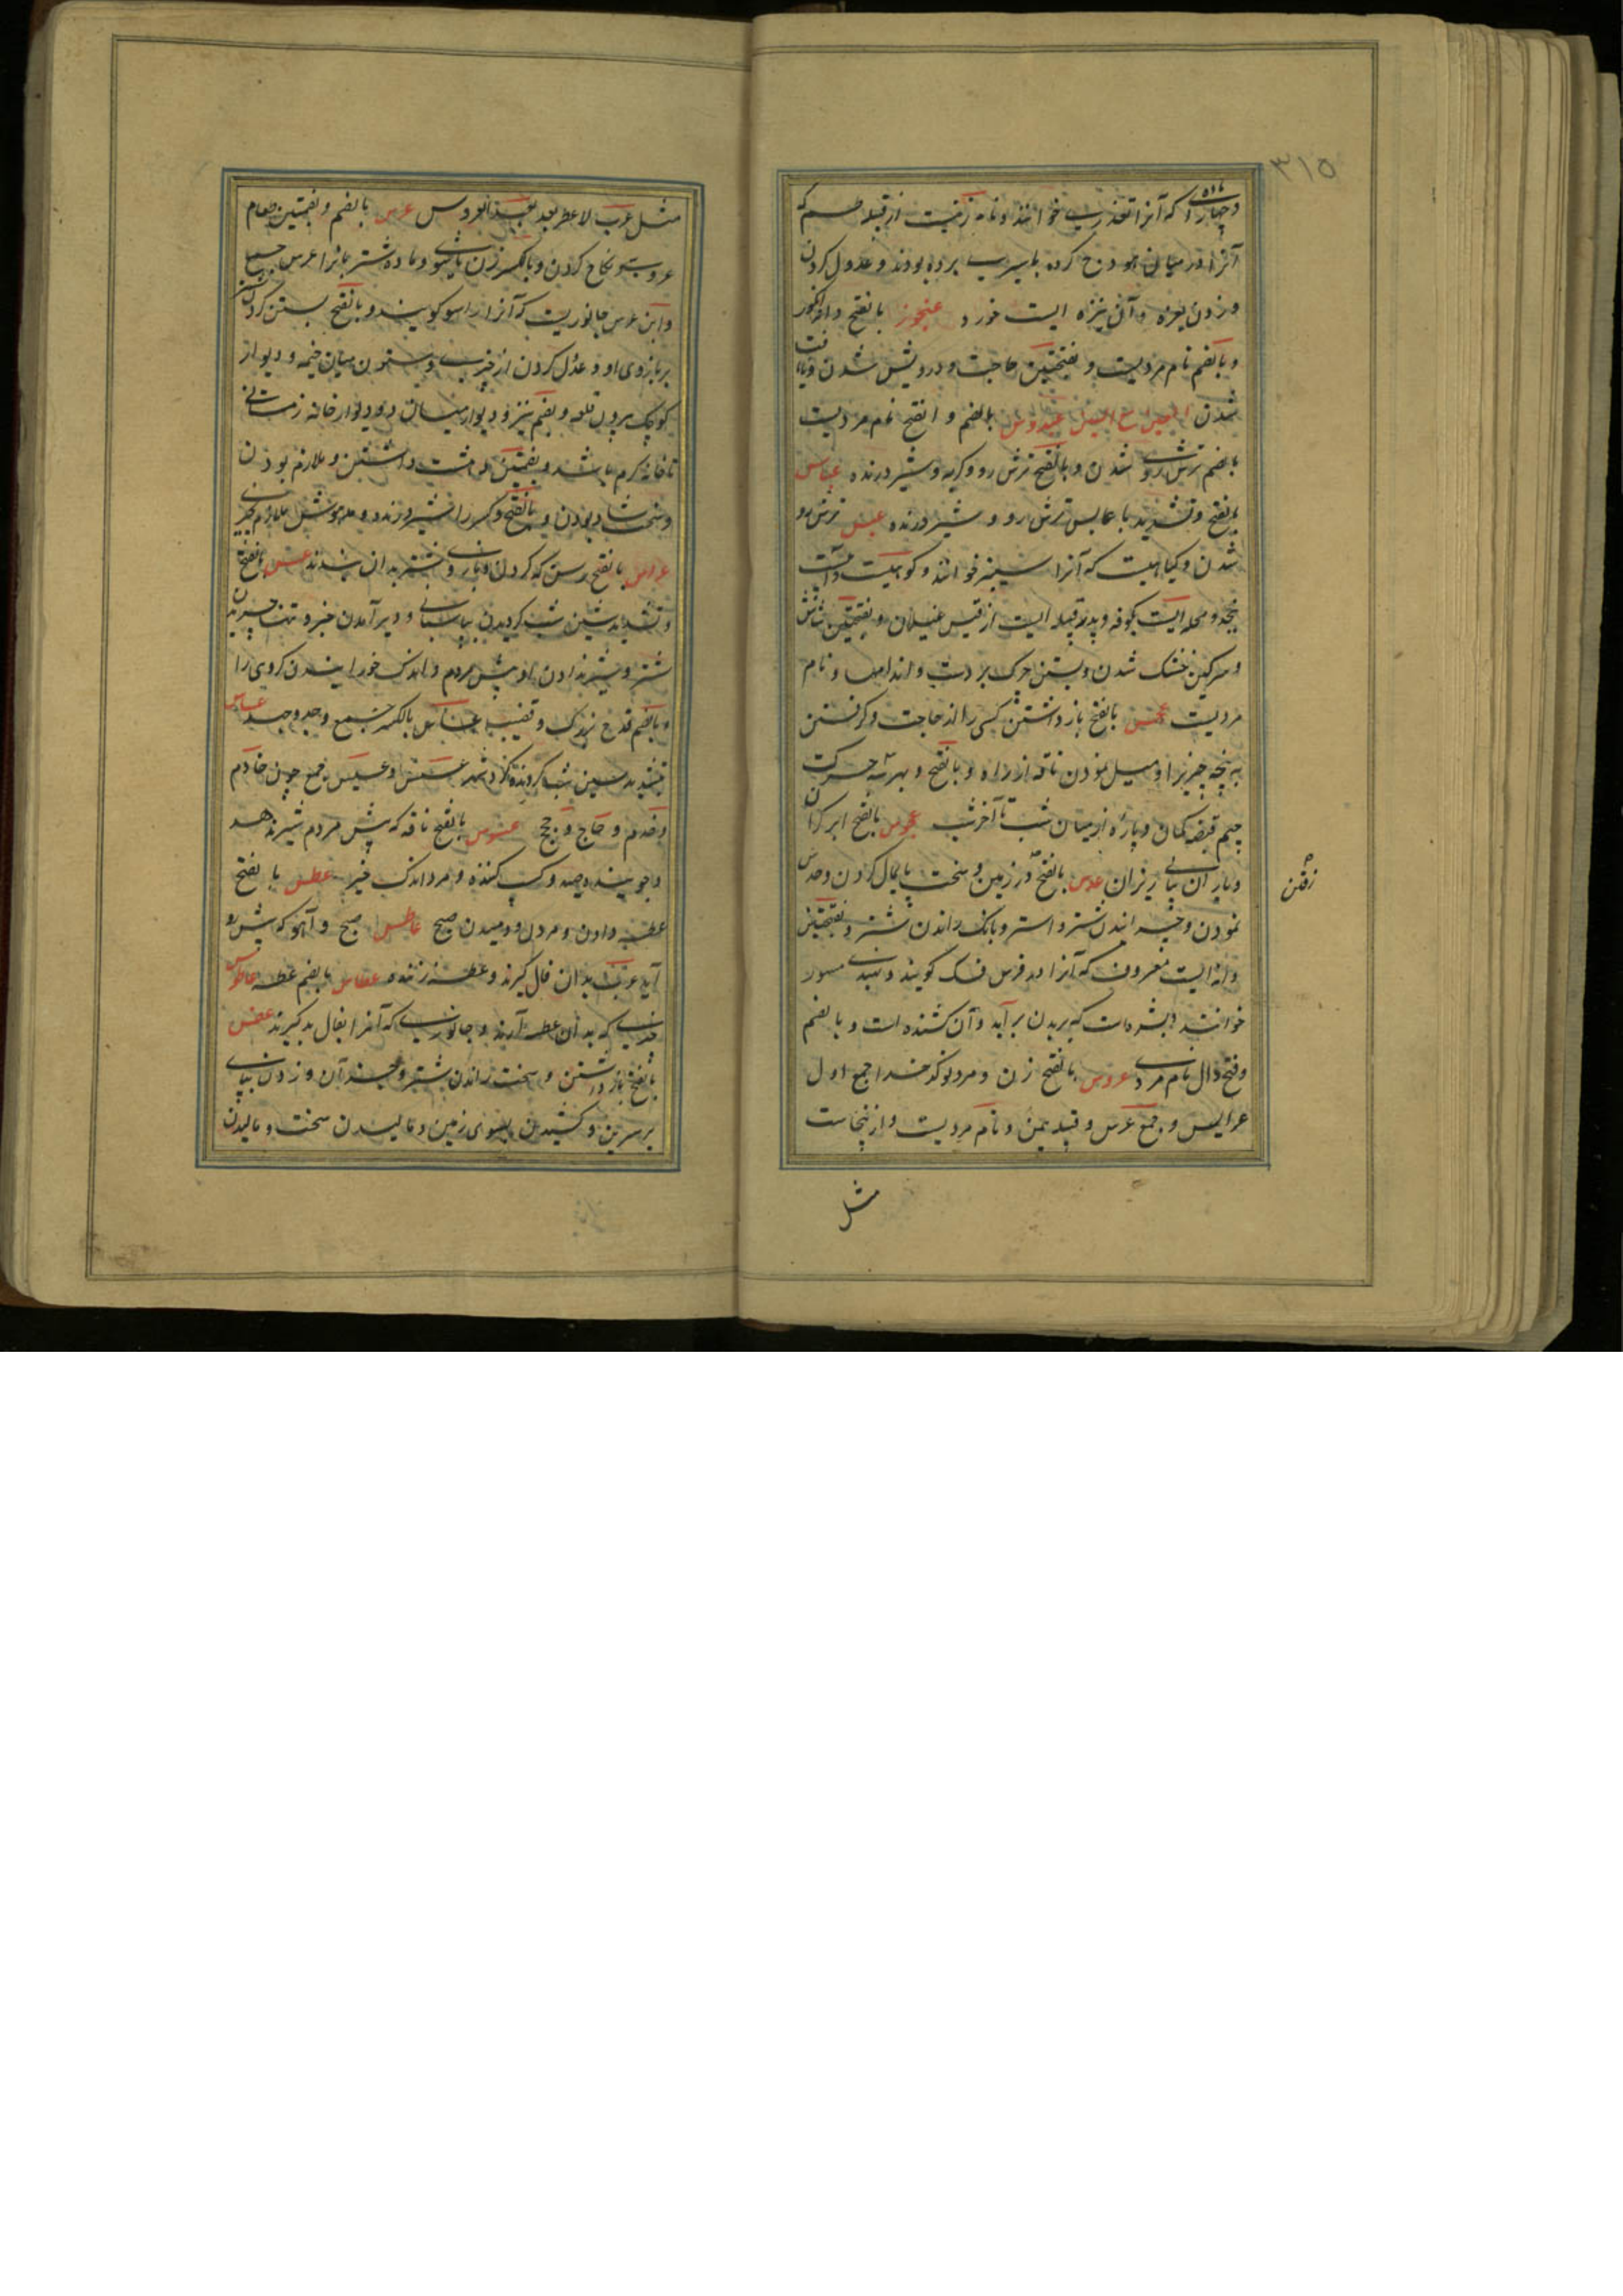 ۳۱۵
که آنرا خوانند و نام زنیست از قبیله طسم که
آنرا در میان هودج کرده باسیری برده بودند و عدول کردن
و زدن بعنزه و آن نیزه ایست خورد عنجوز بالفتح
و بالضم نام مردیست و بفتحتین حاجت و درویش شدن
شدن العین مع السین عبدوس بالضم و الفتح نام مردیست
بالضم ترش روی شدن و بالفتح ترش رو و کریه و شیر درنده عباس
بالفتح و تشدید با عابس ترش رو و شیر درنده عبس ترش رو
شدن و کیاهیست که آنرا سیسنبر خوانند و کوهیست و آبیست
بنجد و محله ایست بکوفه و پدر قبیله ایست از قیس غیلان و بفتحتین
و سرکین خشک شدن و بستن چرک بر دست و اندامها و نام
مردیست عجس بالفتح باز داشتن کسی را از حاجت و کرفتن
به پنجه چیزیرا و میل نمودن ناقه از راه و بالفتح و بهر سه حرکت
جیم قبضه کمان و پاره از میان شب تا آخر شب عجوس بالفتح ابر کران
و باران پیاپی ریزان عدس بالفتح در زمین و سخت پایمال کردن و حدس
رفتن
نمودن و خیسانیدن شتر و استر و بانک راندن شتر و بفتحتین
دانه ایست معروف که آنرا در فرس نسک کویند و بهندی مسور
خوانند و بثره ایست که بر بدن بر آید و آن کشنده است و بالضم
و فتح دال نام مردی عروس بالفتح زن و مرد نو کدخدا جمع اول
عرایس و جمع عرس و قبیله یمن و نام مردیست و از ینجاست
مثل
مثل عرب لا عطر بعد العروس عرس بالضم و بضمتین طعام
عروسی و نکاح کردن و بالکسر زن با شوی و ماده شتر با نر اعراس جمع
و ابن عرس جانوریست که آنرا راسو کویند و بالفتح بستن کردن شتر
بر بازوی او و عدول کردن از چیزی و ستون میان خیمه و دیوار
کوچک بیرون قلعه و بضم نیز و دیوار میان دو دیوار خانه زمستانی
تا خانه کرم باشد و بفتحتین دهشت داشتن و ملازم بودن
و سخت شاد بودن و بالفتح و کسر را شیر درنده و مدهوش ملازم چیزی
عراس بالفتح رسن که کردن و بازوی شتر بدان بندند عس بالفتح
و تشدید سین شب کردیدن بپاسبانی و دیر آمدن خبر و تنها چریدن
شتر و شیر ندادن او پیش مردم و اندک خورانیدن کروهی را
و بالضم قدح بزرک و قضیب عساس بالکسر جمع و جد و جهد عساس
بتشدید سین شب کردنده کرد شهر عسس و عسیس جمع چون خادم
و خدم و حاج و حجیج عسوس بالفتح ناقه که پیش مردم شیر ندهد
و جوینده صید و کسب کننده و مرد اندک خیر عطس بالفتح
عطسه دادن و مردن و دمیدن صبح عاطس صبح و آهو که پیش رو
آید عرب بدان فال کیرند و عطسه زننده عطاس بالضم عطسه عاطوس
چیزی که بدان عطسه آرند و جانوری که آنرا بفال بد کیرند عفس
بالفتح باز داشتن و سخت راندن شتر و جز آن و زدن بپای
بر سرین و کشیدن بسوی زمین و مالیدن سخت و مالیدن